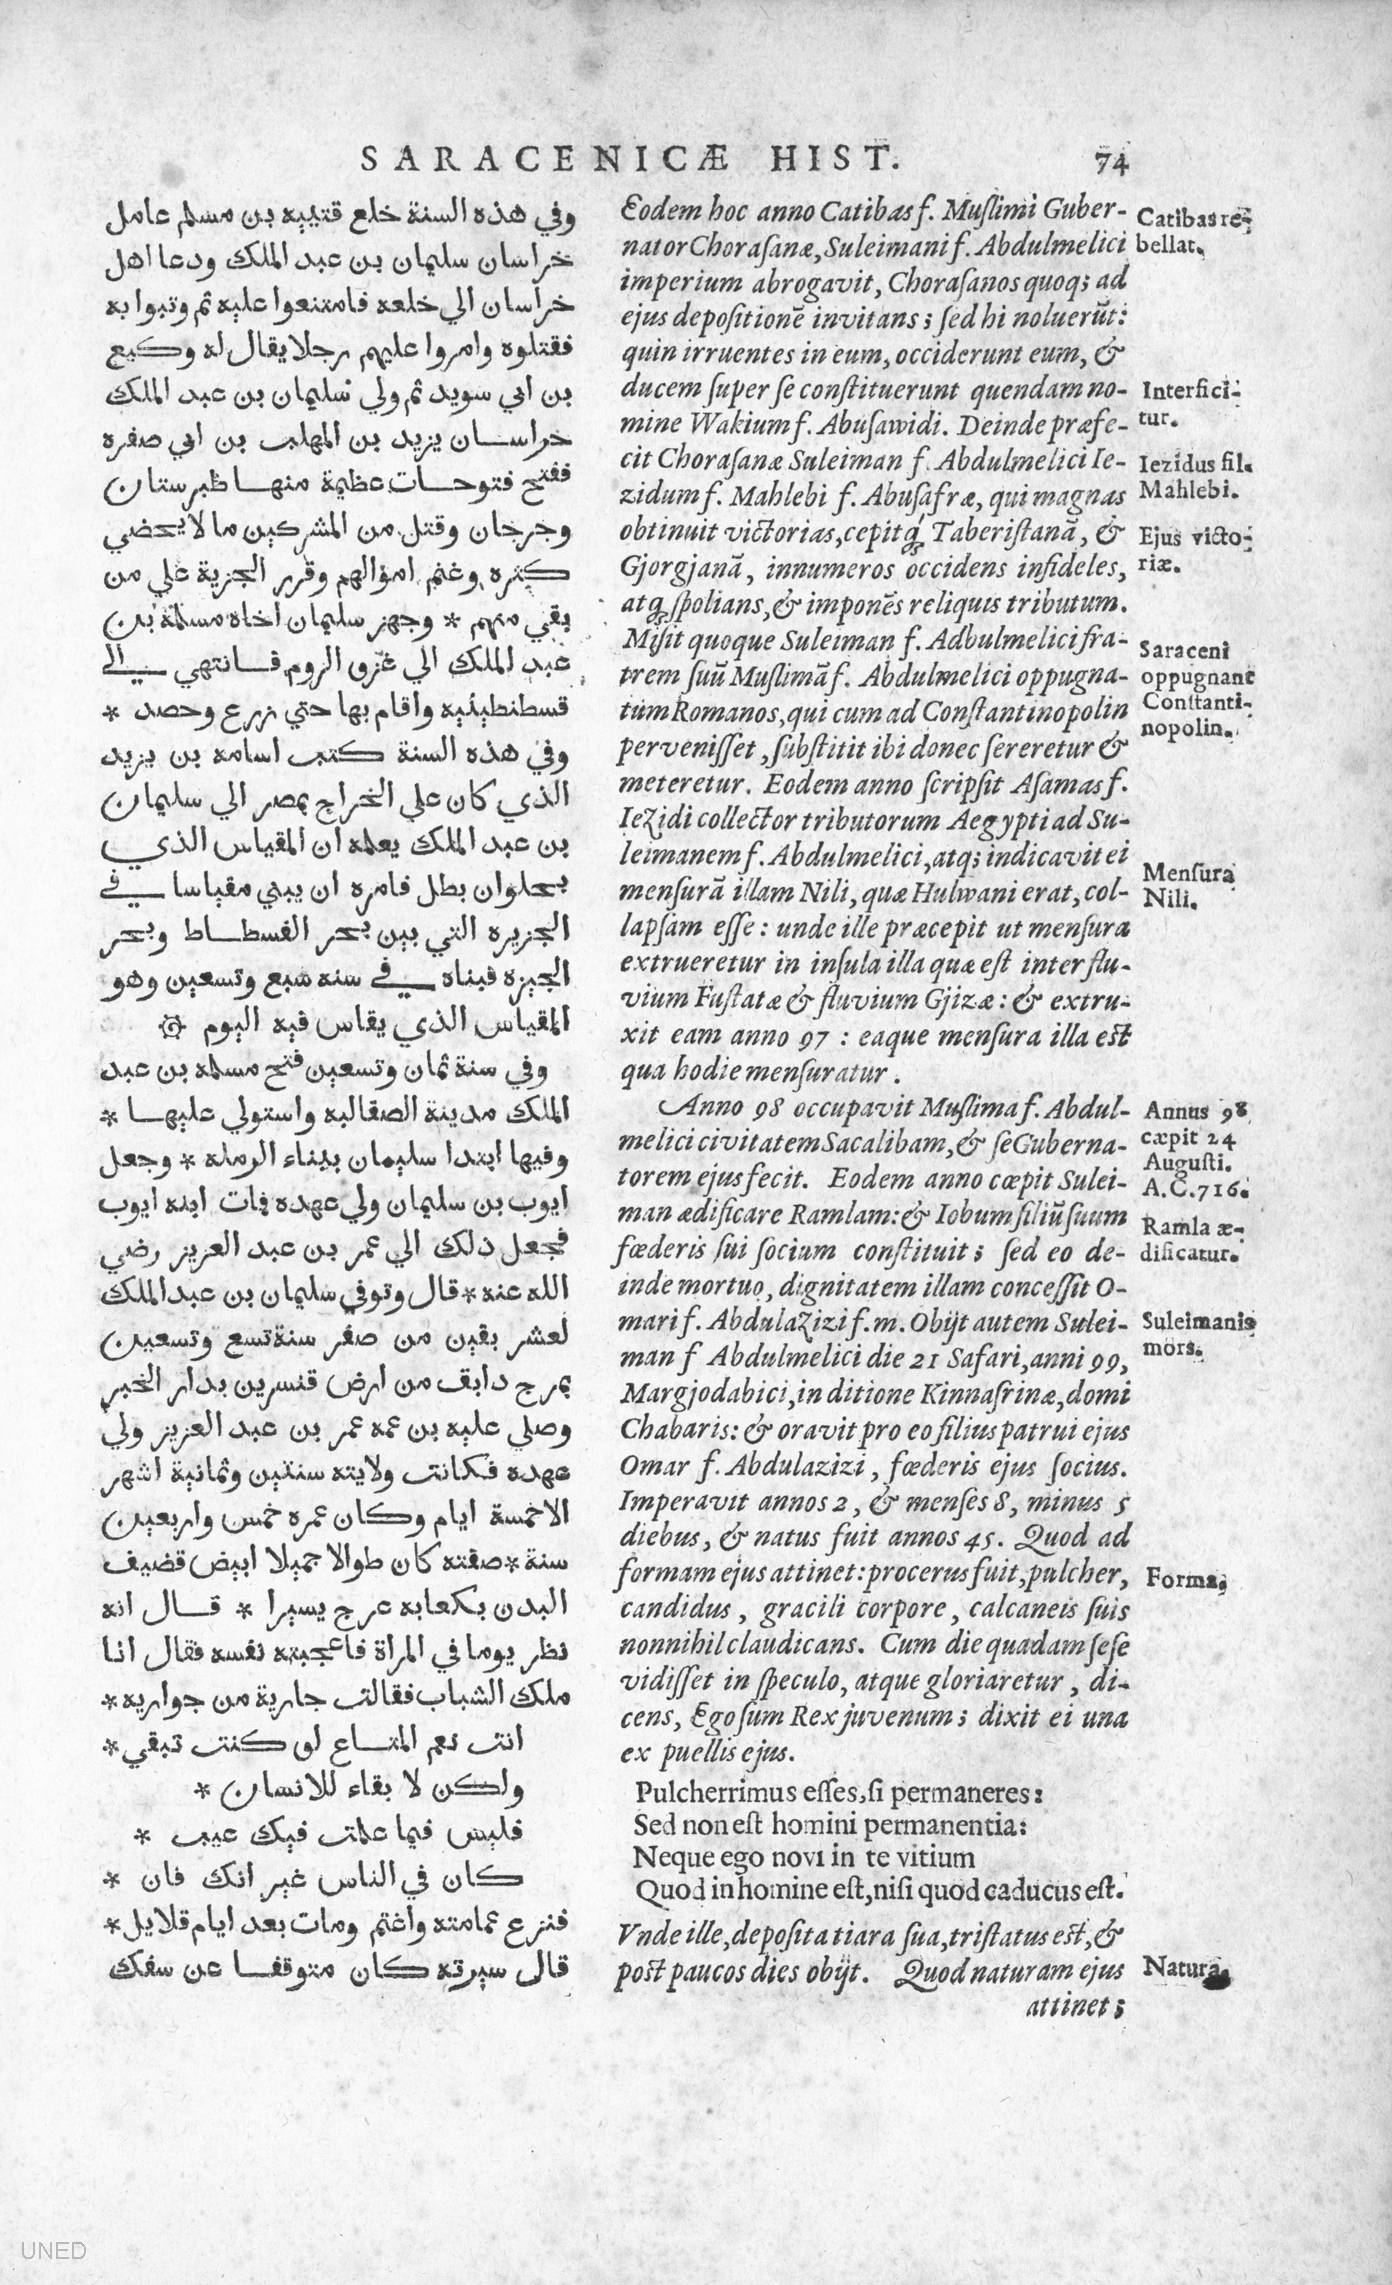 SARACENICÆ HIST. 74
وفي هذه السنة خلع قتيبه بن مسلم عامل
خراسان سليمان بن عبد الملك ودعا اهل
خراسان الي خلعه فامتنعوا عليه ثم وثبوا به
فقتلوه وامروا عليهم رجلا يقال له وكيع
بن ابي سويد ثم ولي سليمان بن عبد الملك
خراسان يزيد بن المهلب بن ابي صفره
ففتح فتوحات عظيمة منها طبرستان
وجرجان وقتل من المشركين ما لا يحصي
كثره وغنم اموالهم وقرر الجزية علي من
بقي منهم * وجهز سليمان اخاه مسلمة بن
عبد الملك الي غزو الروم فانتهي الي
قسطنطينيه واقام بها حتي زرع وحصد *
وفي هذه السنة كتب اسامه بن يزيد
الذي كان علي الخراج بمصر الي سليمان
بن عبد الملك يعلمه ان المقياس الذي
بحلوان بطل فامره ان يبني مقياسا في
الجزيره التي بين بحر الفسطاط وبحر
الجيزه فبناه في سنه سبع وتسعين وهو
المقياس الذي يقاس فيه اليوم
وفي سنة ثمان وتسعين فتح مسلمه بن عبد
الملك مدينة الصقالبه واستولي عليها *
وفيها ابتدا سليمان ببناء الرمله * وجعل
ايوب بن سليمان ولي عهده فات ابنه ايوب
فجعل ذلك الي عمر بن عبد العزيز رضي
الله عنه * قال وتوفي سليمان بن عبد الملك
لعشر بقين من صفر سنة تسع وتسعين
بمرج دابق من ارض قنسرين بدار الخبر
وصلي عليه بن عمه عمر بن عبد العزيز ولي
عهده فكانت ولايته سنتين وثمانية اشهر
الاخمسة ايام وكان عمره خمس واربعين
سنة * صفته كان طوالا جميلا ابيض قضيف
البدن بكعابه عرج يسيرا * قال انه
نظر يوما في المراة فاعجبته نفسه فقال انا
ملك الشباب فقالت جارية من جواريه *
انت نعم المتاع لو كنت تبقي *
ولكن لا بقاء للانسان *
فليس فيما علمت فيك عيب *
كان في الناس غير انك فان *
فنزع عمامته واغتم ومات بعد ايام قلايل *
قال سيرته كان متوقفا عن سفك
Eodem hoc anno Catibas f. Muſlimi Guber-
nator Choraſanæ, Suleimani f. Abdulmelici
imperium abrogavit, Choraſanos quoq; ad
ejus depoſitionē invitans; ſed hi noluerūt:
quin irruentes in eum, occiderunt eum, &
ducem ſuper ſe conſtituerunt quendam no-
mine Wakium f. Abuſawidi. Deinde præfe-
cit Choraſanæ Suleiman f. Abdulmelici Ie-
zidum f. Mahlebi f. Abuſafræ, qui magnas
obtinuit victorias, cepitq́ Taberiſtanā, &
Gjorgjanā, innumeros occidens infideles,
atq ſpolians, & imponēs reliquis tributum.
Miſit quoque Suleiman f. Adbulmelici fra-
trem ſuū Muſlimā f. Abdulmelici oppugna-
tum Romanos, qui cum ad Conſtantinopolin
perveniſſet, ſubſtitit ibi donec ſereretur &
meteretur. Eodem anno ſcripſit Aſamas f.
Iezidi collector tributorum Aegypti ad Su-
leimanem f. Abdulmelici, atq; indicavit ei
menſurā illam Nili, quæ Hulwani erat, col-
lapſam eſſe: unde ille præcepit ut menſura
extrueretur in inſula illa quæ eſt inter flu-
vium Fuſtatæ & fluvium Gjizæ: & extru-
xit eam anno 97 : eaque menſura illa eſt
qua hodie menſuratur.
Anno 98 occupavit Muſlima f. Abdul-
melici civitatem Sacalibam, & ſe Guberna-
torem ejus fecit. Eodem anno cœpit Sulei-
man ædificare Ramlam: & Iobum filiū ſuum
fœderis ſui ſocium conſtituit; ſed eo de-
inde mortuo, dignitatem illam conceſſit O-
mari f. Abdulazizi f. m. Obijt autem Sulei-
man f Abdulmelici die 21 Safari, anni 99,
Margjodabici, in ditione Kinnaſrinæ, domi
Chabaris: & oravit pro eo filius patrui ejus
Omar f. Abdulazizi, fœderis ejus ſocius.
Imperavit annos 2, & menſes 8, minus 5
diebus, & natus fuit annos 45. Quod ad
formam ejus attinet: procerus fuit, pulcher,
candidus, gracili corpore, calcaneis ſuis
nonnihil claudicans. Cum die quadam ſeſe
vidiſſet in ſpeculo, atque gloriaretur, di-
cens, Ego ſum Rex juvenum; dixit ei una
ex puellis ejus.
Pulcherrimus eſſes, ſi permaneres:
Sed non eſt homini permanentia:
Neque ego novi in te vitium
Quod in homine eſt, niſi quod caducus eſt.
Vnde ille, depoſita tiara ſua, triſtatus eſt, &
poſt paucos dies obijt. Quod naturam ejus
attinet;
Catibas re-
bellat.
Interfici-
tur.
Iezidus fil.
Mahlebi.
Ejus victo-
riæ.
Saraceni
oppugnant
Conſtanti-
nopolin.
Menſura
Nili.
Annus 98
cæpit 24
Auguſti.
A.C. 716.
Ramla æ-
dificatur.
Suleimanis
mors.
Forma.
Natura.
UNED